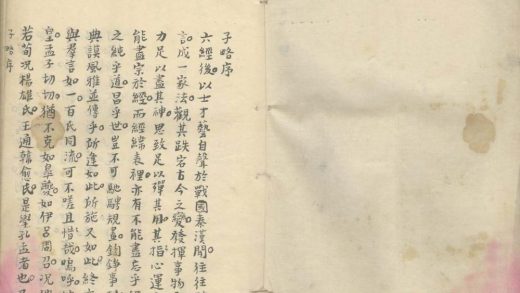 子略序
六經後以士才藝自聲於戰國秦漢間往往
言成一家法觀其跌宕古今之變發揮事物
力足以盡其神思致足以殫其用其指心運
能盡宗於經而經緯表裡亦有不能盡忘乎
之純乎道昌乎世豈不可馳騁規畫事
典謨風雅並傳乎所逢如此所施又如此終
與羣言如一百氏同流可不嗟且惜哉嗚呼
皇孟子切切猶不克如皐夔如伊呂周召况
若荀况楊雄氏王通韓愈氏是學孔孟者也
子略序